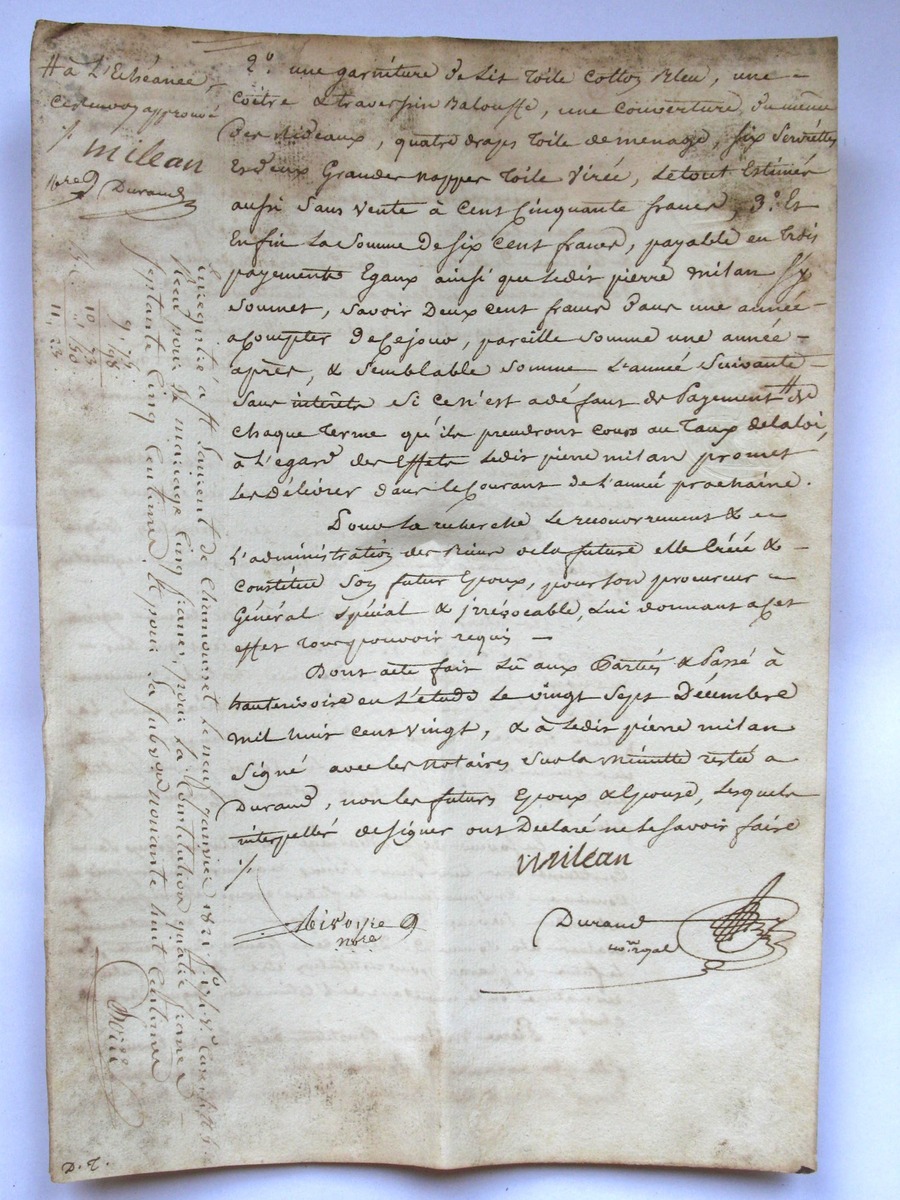 # à L'Echéance,
ce renvoy approuvé
·/.
milean
Nore Durand
2°. une garniture de Lit Toile Cotton Bleu, une
coëtre & traversin Balouffe, une couverture, du même
Des Rideaux, quatre draps Toile de menage, six Serviettes
et deux Grandes nappes Toile virée, Le tout Estimés
aussi Sans vente à Cent Cinquante francs, 3°. Et
Enfin La Somme de Six cent francs, payable en Trois
payements Egaux ainsi que Ledit pierre milan S'y
Soumet, Savoir Deux cent francs Dans une année
a Compter De Ce jour, pareille Somme une année
après, & Semblable Somme L'année Suivante
Sans intérêts Si ce n'est a défaut de Payement # de
Chaque Terme qu'ils prendront cours au Taux de la loi,
à L'égard des Effets Ledit pierre milan promet
Les Délivrer dans le Courant de L'année prochaine.
Pour La recherche Le recouvrement & en
L'administration des Biens de la future elle Créé &
Constitue Son futur Epoux, pour son procureur
Général Spécial & irrévocable, Lui donnant a Cet
effet Tous pouvoir requis —
Dont acte fait Lû aux Parties & Passé à
hauterivoire en L'étude Le vingt Sept Décembre
mil huit cent vingt, & à Ledit pierre milan
Signé avec les Notaires Sur la Minutte restée a
Durand, non les futurs Epoux & Epouse, Lesquels
interpellés de Signer ont Déclaré ne Le Savoir faire
·/.
milean
Nore
Durand
no.re royal
Enregistré à St Laurent de Chamousset Le neuf janvier 1821
Reçu pour Le mariage Cinq francs, pour La Constitution quatre francs
Soixante Cinq Centimes, Et pour La Subv.on nonante huit Centimes
9, 75.
98.
10 73
50.
11, 23
D. T.